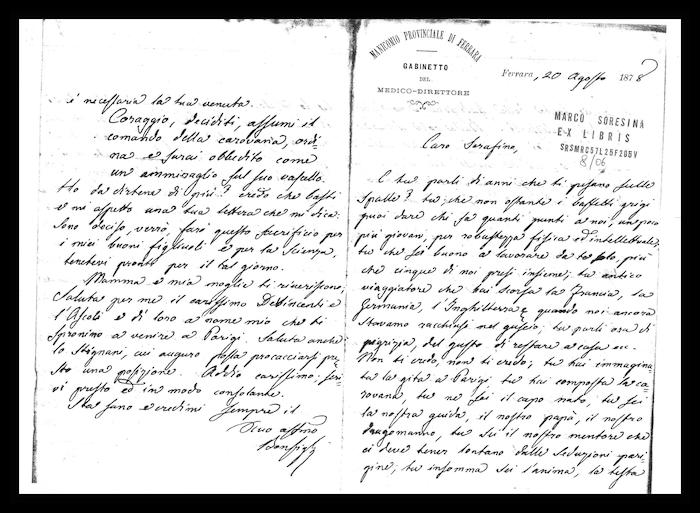 MANICOMIO PROVINCIALE DI FERRARA
GABINETTO
DEL
MEDICO-DIRETTORE
Ferrara, 20 Agosto 1878
MARCO SORESINA
EX LIBRIS
SRSMRC57L25F205V
8/06
Caro Serafino,
E tu parli di anni che ti pesano sulle
spalle? tu che non ostante i baffetti grigi
puoi dare chi sa quanti punti a noi, un poco
più giovani, per robustezza fisica ed intellettuale,
tu che sei buono a lavorare da te solo, più
che cinque di noi presi insieme; tu antico
viaggiatore che hai scorsa la Francia, la
Germania, l'Inghilterra e quando noi ancora
stavamo racchiusi nel guscio; tu parli ora di
pigrizia, del gusto di restare a casa tu.
Non ti credo, non ti credo; tu hai immagina
ta la gita a Parigi, tu hai composta la ca
rovana, tu ne sei il capo nato, tu sei
la nostra guida, il nostro papà, il nostro
dragomanno, tu sei il nostro mentore che
ci deve tener lontano dalle seduzioni pari
gine; tu insomma sei l'anima, la testa
è necessaria la tua venuta.
Coraggio, deciditi, assumi il
comando della carovana, ordi
na e sarai obbedito come
un ammiraglio sul suo vascello.
Ho da dirtene di più? credo che basti
e mi aspetto una tua lettera che mi dica:
sono deciso, verrò, farò questo sacrificio per
i miei buoni figliuoli e per la scienza,
tenetevi pronti per il tal giorno.
Mamma e mia moglie ti riveriscono,
Saluta per me il carissimo Devincenti e
l'Ascoli e dì loro a nome mio che ti
spronino a venire a Parigi. Saluta anche
lo Stignani, cui auguro possa procacciarsi pre
sto una posizione. Addio carissimo; scri
vi presto ed in modo consolante.
Sta sano e credimi sempre il
tuo affmo
Bonfigli